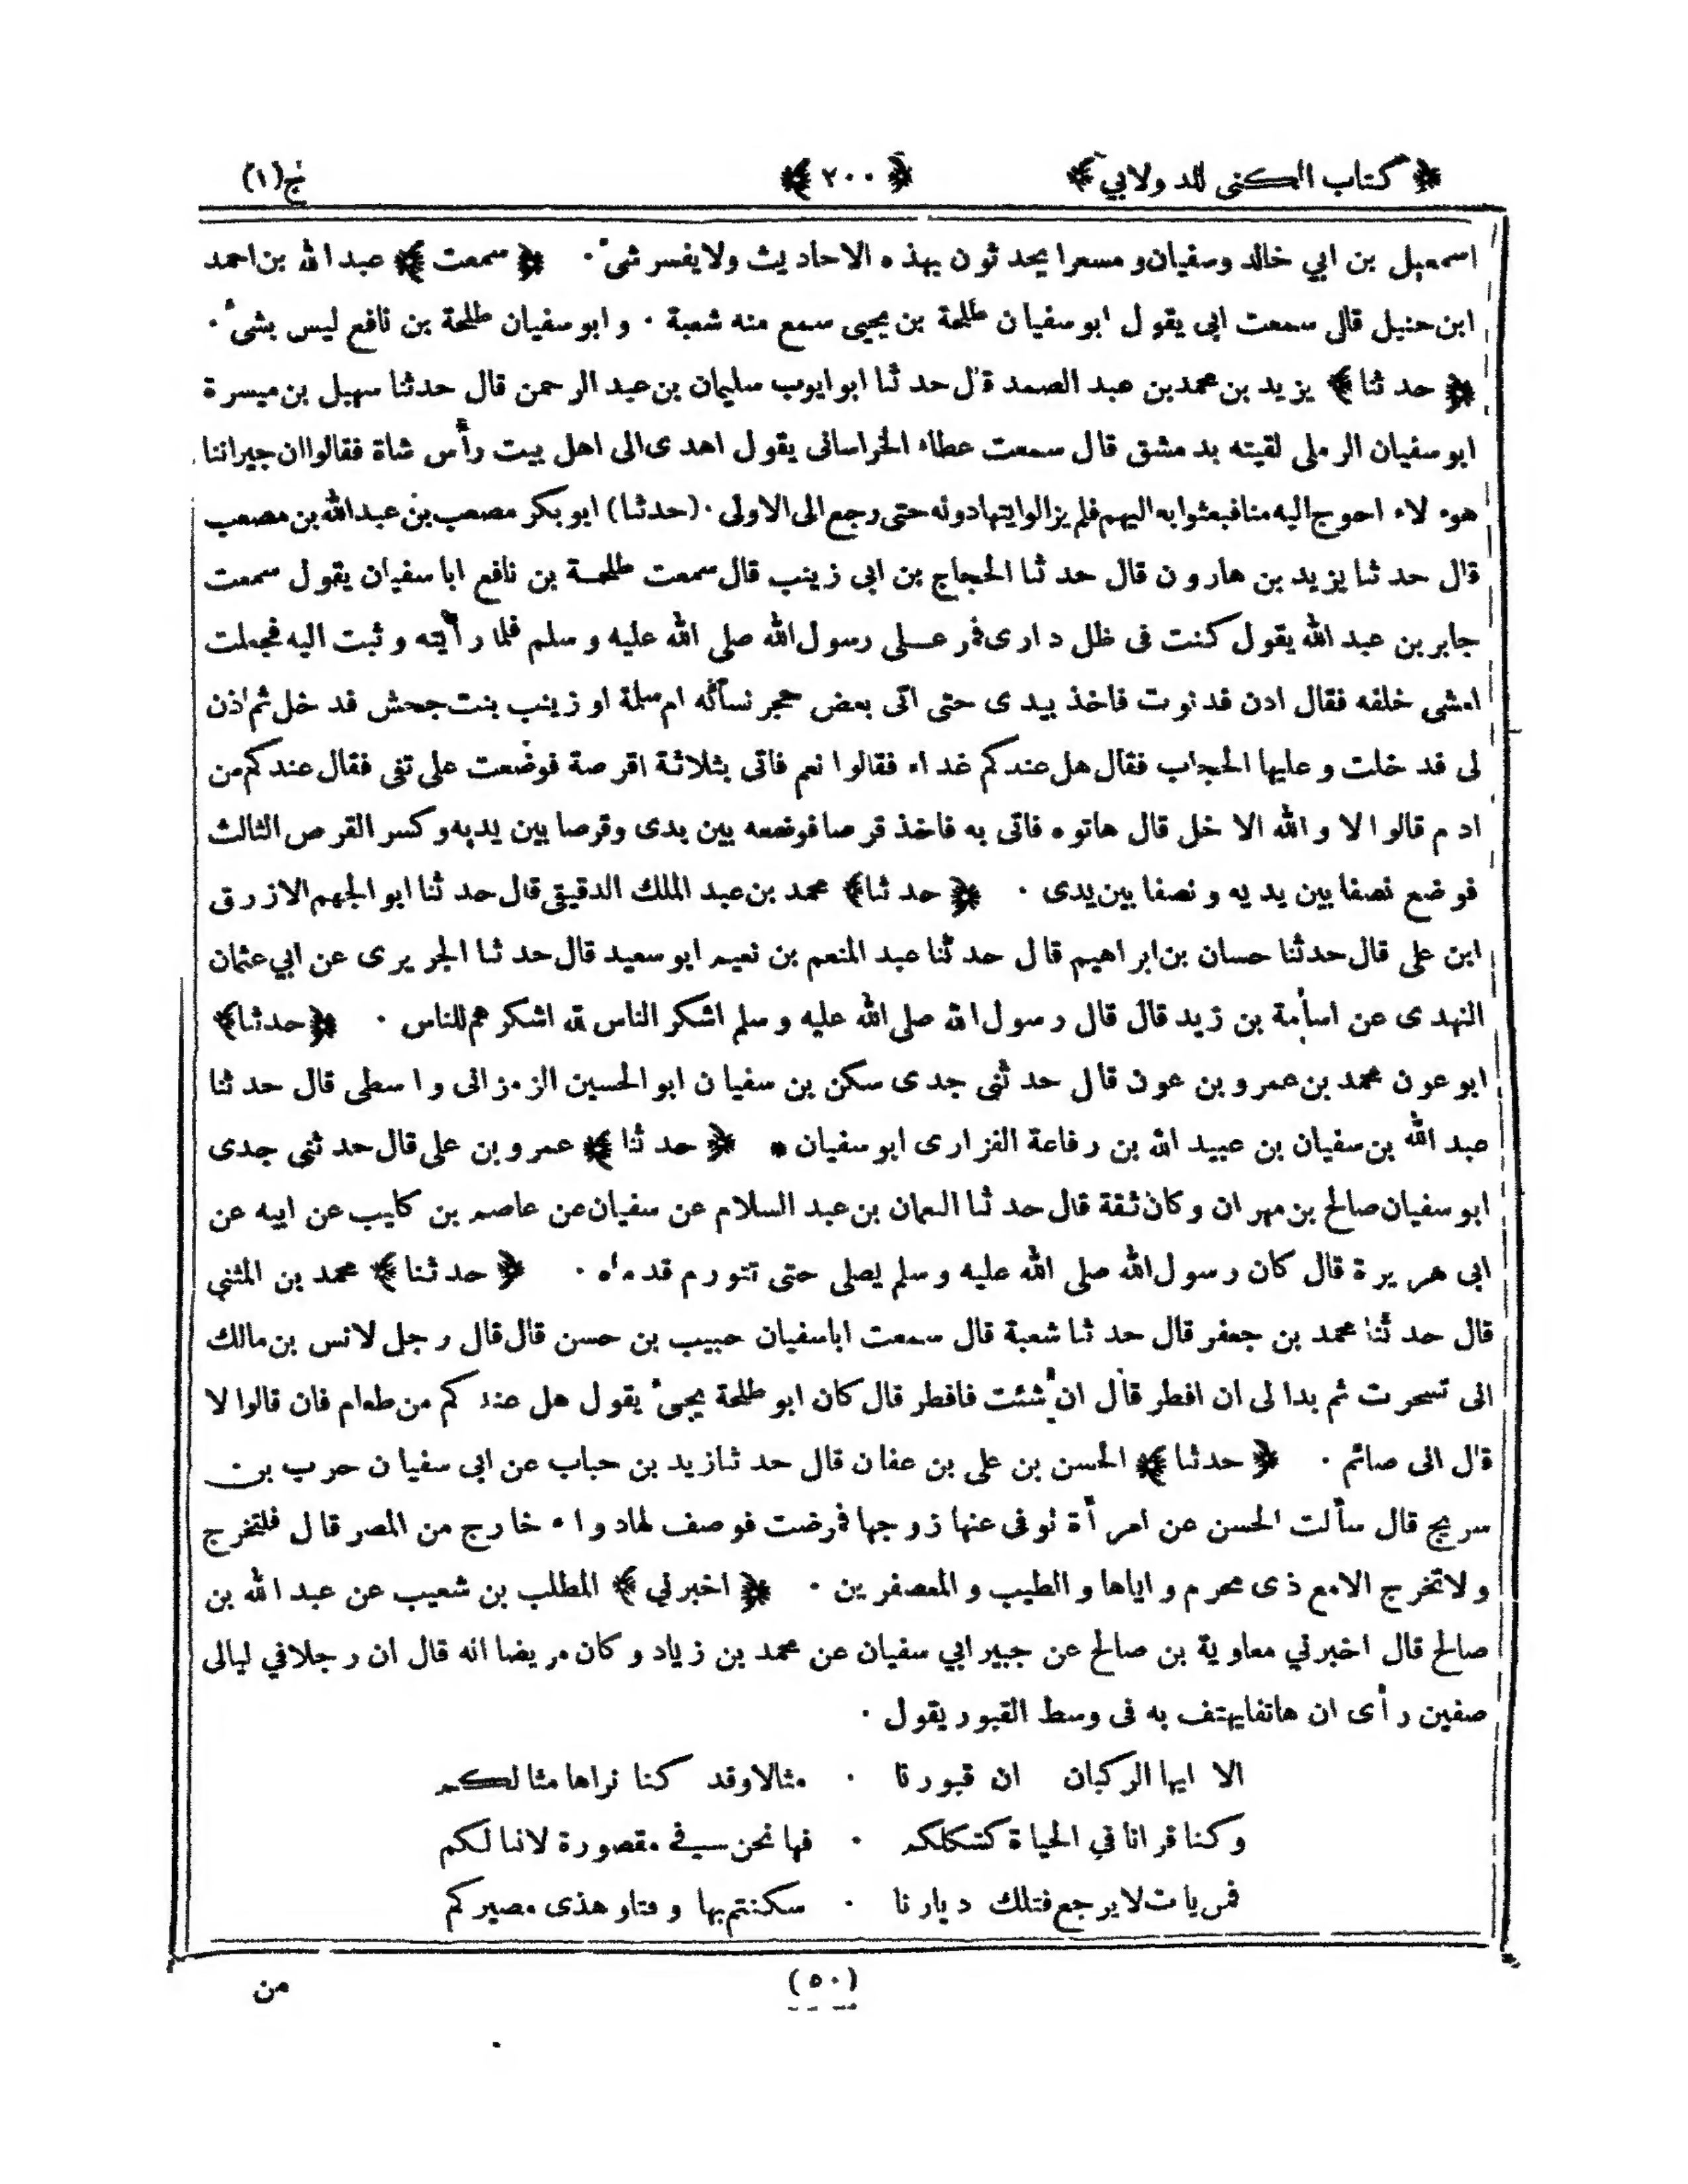 ﴿ كتاب الكنى للدولابي ﴾ ﴿ ٢٠٠ ﴾ ج(١)
اسمعيل بن ابي خالد وسفيان ومسعرا يحدثون بهذه الاحاديث ولا يفسر شئ ٠ ﴿ سمعت ﴾ عبد الله بن احمد
ابن حنبل قال سمعت ابى يقول ابو سفيان طلحة بن يحيى سمع منه شعبة ٠ وابو سفيان طلحة بن نافع ليس بشئ ٠
﴿ حدثنا ﴾ يزيد بن محمد بن عبد الصمد قال حدثنا ابو ايوب سليمان بن عبد الرحمن قال حدثنا سهيل بن ميسرة
ابو سفيان الرملى لقيته بدمشق قال سمعت عطاء الخراسانى يقول اهدى الى اهل بيت رأس شاة فقالوا ان جيراننا
هوءلاء احوج اليه منا فبعثوا به اليهم فلم يزالوا يتهادونه حتى رجع الى الاولى ٠ (حدثنا) ابو بكر مصعب بن عبد الله بن مصعب
قال حدثنا يزيد بن هارون قال حدثنا الحجاج بن ابى زينب قال سمعت طلحة بن نافع ابا سفيان يقول سمعت
جابر بن عبد الله يقول كنت فى ظل دارى فمر عـلى رسول الله صلى الله عليه وسلم فلما رأيته وثبت اليه فجعلت
امشى خلفه فقال ادن فدنوت فاخذ بيدى حتى اتى بعض حجر نسآئه ام سلمة او زينب بنت جحش فدخل ثم اذن
لى فدخلت وعليها الحجاب فقال هل عندكم غداء فقالوا نعم فاتى بثلاثة اقرصة فوضعت على تفى فقال عندكم من
ادم قالوا لا والله الا خل قال هاتوه فاتى به فاخذ قرصا فوضعه بين يدى وقرصا بين يديه وكسر القرص الثالث
فوضع نصفا بين يديه ونصفا بين يدى ٠ ﴿ حدثنا ﴾ محمد بن عبد الملك الدقيقى قال حدثنا ابو الجهم الازرق
ابن على قال حدثنا حسان بن ابراهيم قال حدثنا عبد المنعم بن نعيم ابو سعيد قال حدثنا الجريرى عن ابي عثمان
النهدى عن اسامة بن زيد قال قال رسول الله صلى الله عليه وسلم اشكر الناس لله اشكرهم للناس ٠ ﴿ حدثنا ﴾
ابو عون محمد بن عمرو بن عون قال حدثنى جدى سكن بن سفيان ابو الحسين الزمزانى واسطى قال حدثنا
عبد الله بن سفيان بن عبيد الله بن رفاعة الفزارى ابو سفيان * ﴿ حدثنا ﴾ عمرو بن على قال حدثنى جدى
ابو سفيان صالح بن مهران وكان ثقة قال حدثنا النعمان بن عبد السلام عن سفيان عن عاصم بن كليب عن ابيه عن
ابى هريرة قال كان رسول الله صلى الله عليه وسلم يصلى حتى تتورم قدماه ٠ ﴿ حدثنا ﴾ محمد بن المثنى
قال حدثنا محمد بن جعفر قال حدثنا شعبة قال سمعت ابا سفيان حبيب بن حسن قال قال رجل لانس بن مالك
انى تسحرت ثم بدا لى ان افطر قال ان شئت فافطر قال كان ابو طلحة يجئ يقول هل عندكم من طعام فان قالوا لا
قال انى صائم ٠ ﴿ حدثنا ﴾ الحسن بن على بن عفان قال حدثنا زيد بن حباب عن ابى سفيان حرب بن
سريج قال سألت الحسن عن امرأة توفى عنها زوجها فمرضت فوصف لها دواء خارج من المصر قال فلتخرج
ولا تخرج الا مع ذى محرم واياها والطيب والمعصفرين ٠ ﴿ اخبرني ﴾ المطلب بن شعيب عن عبد الله بن
صالح قال اخبرني معاوية بن صالح عن جبير ابي سفيان عن محمد بن زياد وكان مريضا انه قال ان رجلا في ليالى
صفين رأى ان هاتفا يهتف به فى وسط القبور يقول ٠
الا ايها الركبان ان قبورنا ٠ مثالا وقد كنا نراها مثالكم
وكنا قرانا في الحياة كشكلكم ٠ فها نحن في مقصورة لاننالكم
فمن يات لا يرجع فتلك ديارنا ٠ سكنتم بها وهذى مصيركم
(٥٠)
من